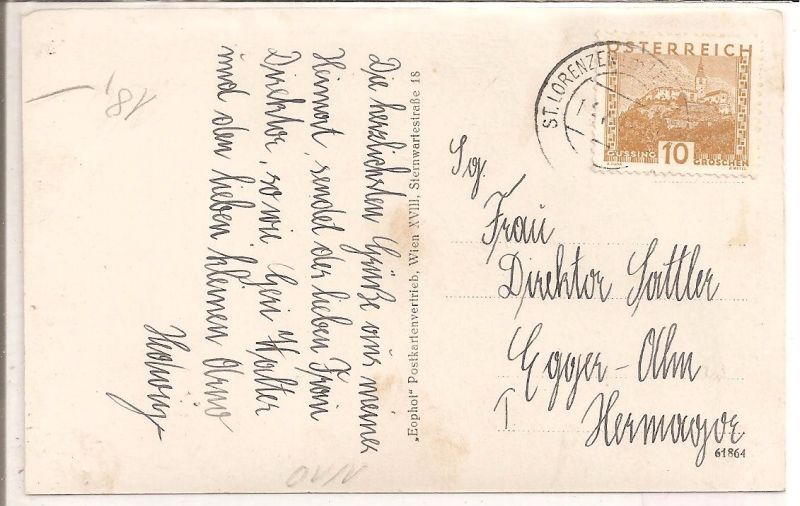 Die herzlichsten Grüße aus meiner
Heimort, sendet der lieben Frau
Direktor, so wie Geri Walter
und den lieben kleinen Arno
Hedwig
18,
„Eophot“ Postkartenvertrieb, Wien XVIII, Sternwartestraße 18
ÖSTERREICH
ST. LORENZEN
GÜSSING 10 GROSCHEN
Sg.
Frau
Direktor Sattler
Egger-Alm
Hermagor
61864